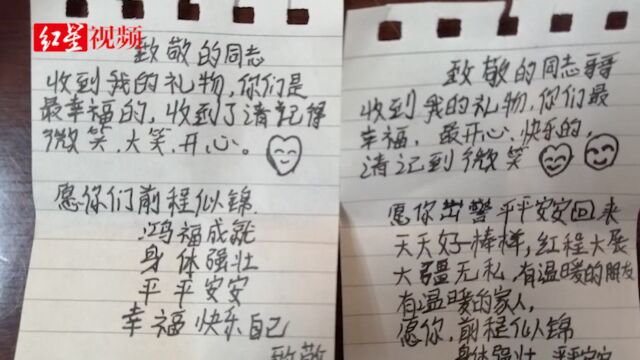 红星视频
致敬的同志
收到我的礼物,你们是
最幸福的,收到了请记得
微笑,大笑,开心。
愿你们前程似锦
鸿福成就
身体强壮
平平安安
幸福快乐自己
致敬
致敬的同志哥哥
收到我的礼物,你们最
幸福,最开心、快乐的,
请记到微笑
愿你出警平平安安回来
天天好棒样,红程大展
大疆无私,有温暖的朋友
有温暖的家人,
愿你,前程似锦
身体强壮 平平安安